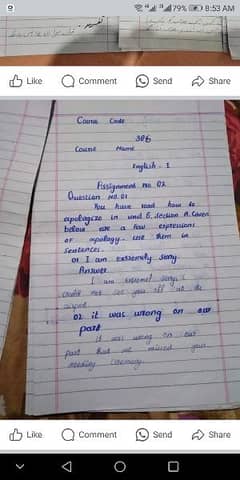 79% 8:53 AM
Like Comment Send Share
Course Code
386
Course Name
English - I
Assignment no. 02
Question No. 01
You have read how to
apologize in unit 6, section A. Given
below are a few expressions
of apology. use them in
sentences.
01 I am extremely sorry.
Answer
I am extremely sorry I
could not see you off at the
airport
02 it was wrong on our
part
it was wrong on our
part that we missed your
wedding ceremony.
Like Comment Send Share